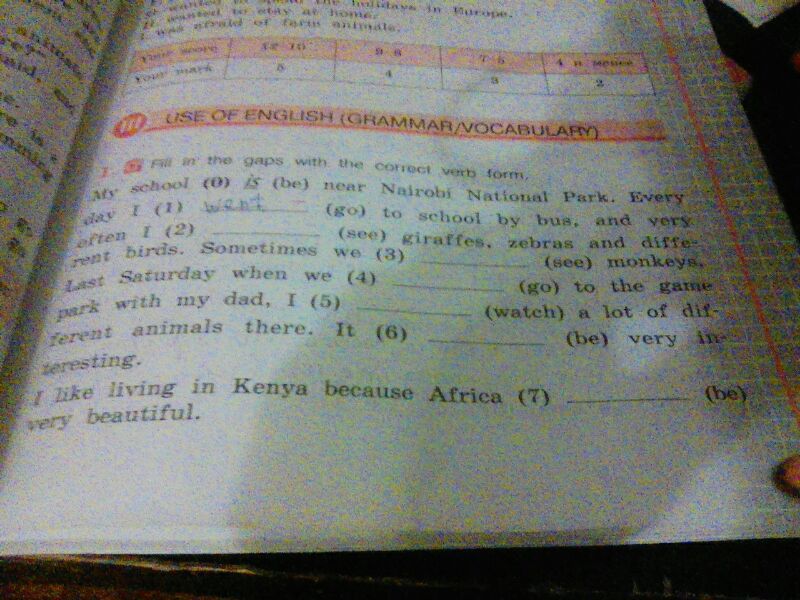 wanted to spend the holidays in Europe.
wanted to stay at home.
was afraid of farm animals.
Your score 12–10 9–8 7–5 4 и менее
Your mark 5 4 3 2
III USE OF ENGLISH (GRAMMAR/VOCABULARY)
1. Fill in the gaps with the correct verb form.
My school (0) is (be) near Nairobi National Park. Every
day I (1) went (go) to school by bus, and very
often I (2) ____ (see) giraffes, zebras and diffe-
rent birds. Sometimes we (3) ____ (see) monkeys.
Last Saturday when we (4) ____ (go) to the game
park with my dad, I (5) ____ (watch) a lot of dif-
ferent animals there. It (6) ____ (be) very in-
teresting.
I like living in Kenya because Africa (7) ____ (be)
very beautiful.